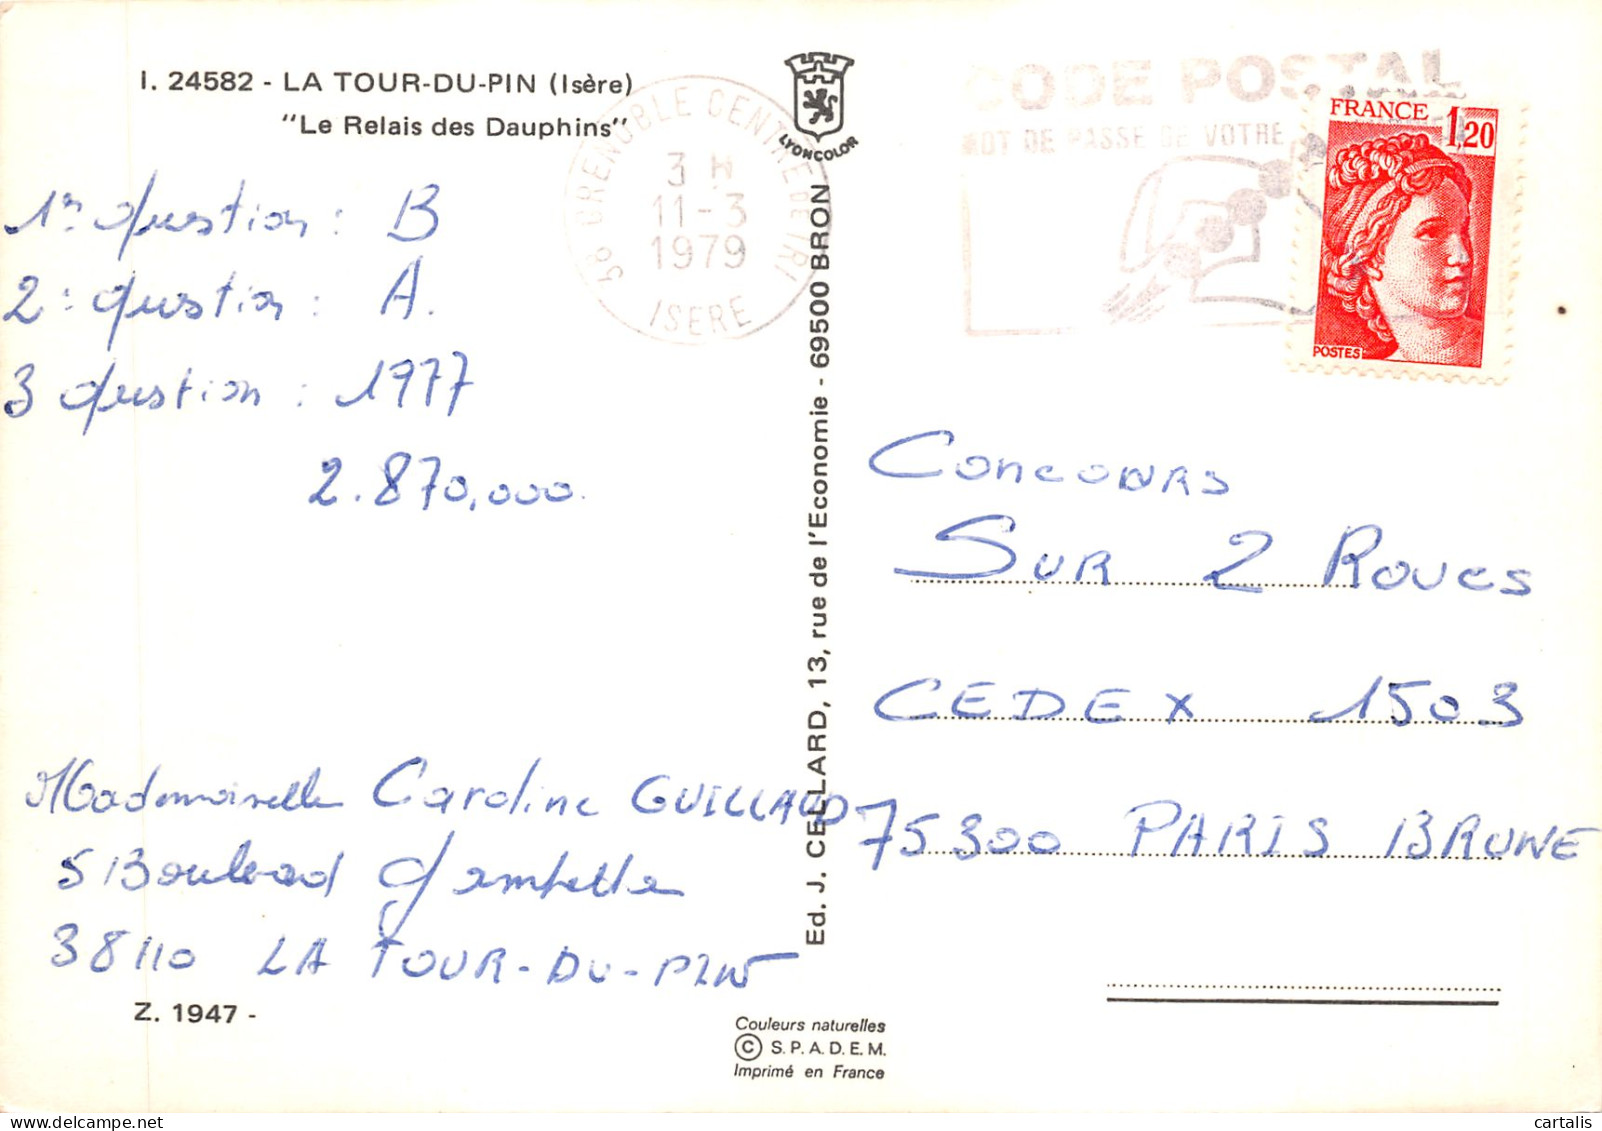 I. 24582 - LA TOUR-DU-PIN (Isère)
"Le Relais des Dauphins"
LYONCOLOR
38 GRENOBLE CENTRE DE TRI
3 H
11-3
1979
ISERE
CODE POSTAL
MOT DE PASSE DE VOTRE
FRANCE 1,20
POSTES
1re question : B
2e question : A.
3 question : 1977
2.870,000.
Mademoiselle Caroline GUILLAUD
5 Boulevard Gambetta
38110 LA TOUR-DU-PIN
Z. 1947 -
Ed. J. CELLARD, 13, rue de l'Economie - 69500 BRON
Couleurs naturelles
© S.P.A.D.E.M.
Imprimé en France
Concours
SUR 2 Roues
CEDEX 1503
75300 PARIS BRUNE
cartalis